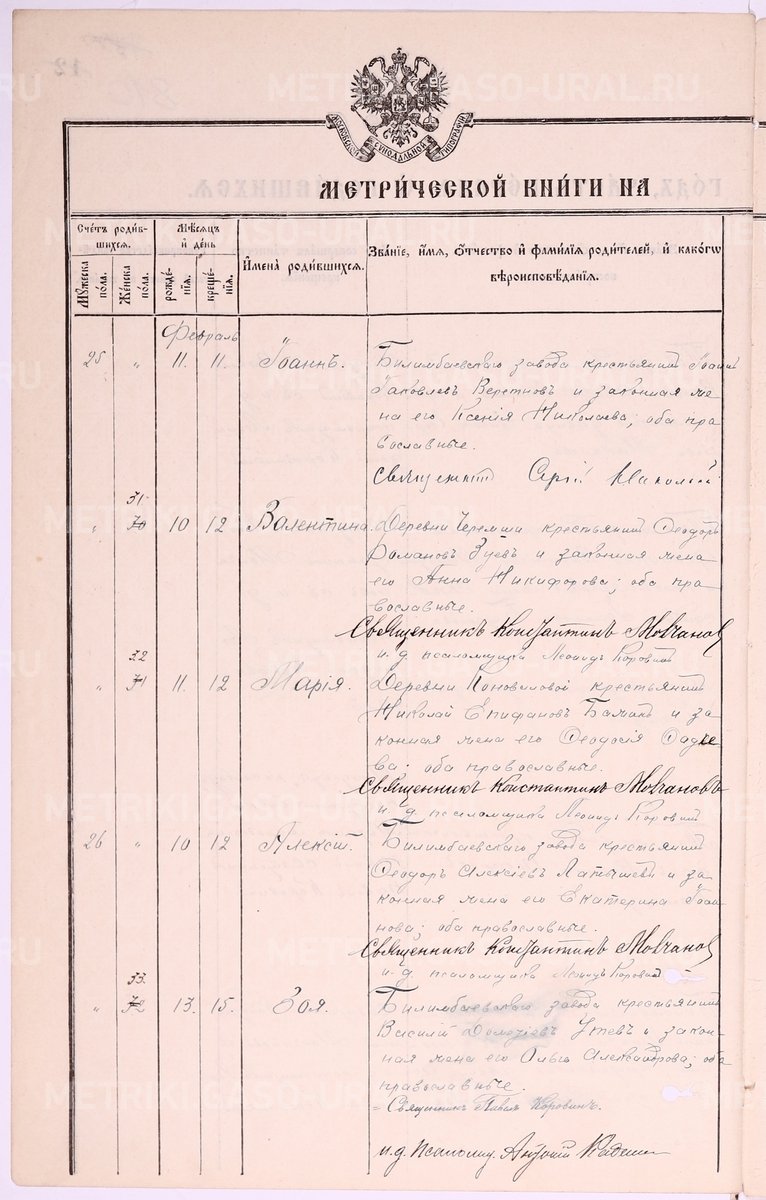 МОСКОВСКОЙ СѴНОДАЛЬНОЙ ТИПОГРАФІИ
МЕТРИ́ЧЕСКОЙ КНИ́ГИ НА
Сче́тъ роди́в-
шихсѧ.
Мѣ́сѧцъ
и҆ де́нь
Мꙋ́жеска
по́ла.
Же́нска
по́ла.
рожде́-
нїѧ.
креще́-
нїѧ.
И҆мена̀ роди́вшихсѧ.
Зва́нїе, и҆́мѧ, ѻ҆́тчество и҆ фами́лїѧ роди́телей, и҆ како́гѡ
вѣроисповѣ́данїѧ.
Февраль
25 „ 11. 11. Іоаннъ. Билимбаевскаго завода крестьянинъ Іоаннъ
Іаковлевъ Веретновъ и законная же
на его Ксенія Николаева; оба пра
вославные.
Священникъ
31
„ 30 10 12 Валентина. Деревни Черемша крестьянинъ Ѳеодоръ
Романовъ Зуевъ и законная жена
его Анна Никифорова; оба пра
вославные.
Священникъ Константинъ Мовчановъ
и. д. псаломщика Леонидъ Коровинъ
32
„ 31 11. 12 Марія. Деревни Коноваловой крестьянинъ
Николай Епифановъ и за
конная жена его Ѳеодосія Фадѣе
ва; оба православные.
Священникъ Константинъ Мовчановъ
и. д. псаломщика Леонидъ Коровинъ
26 „ 10 12 Алексій. Билимбаевскаго завода крестьянинъ
Ѳеодоръ Алексіевъ Латышевъ и за
конная жена его Екатерина Іоан
нова; оба православные.
Священникъ Константинъ Мовчановъ
и. д. псаломщика Леонидъ Коровинъ
33.
„ 32 13. 15. Зоя. Билимбаевскаго завода крестьянинъ
Василій Утевъ и закон-
ная жена его Ольга Александрова; оба
православные.
Священникъ Павелъ Коровинъ.
и. д. Псаломщ. Антоній
METRIKI.GASO-URAL.RU